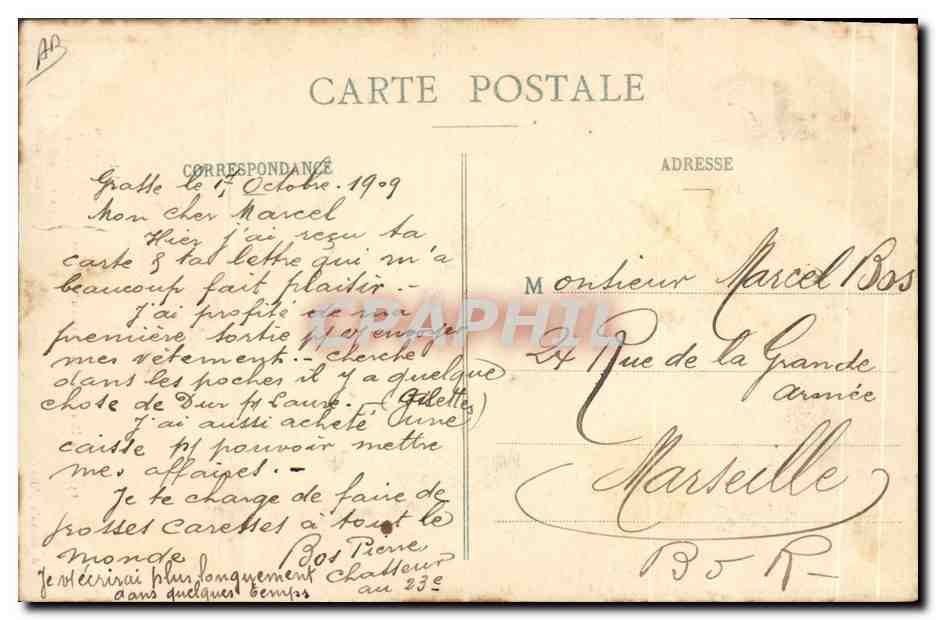 AB
CARTE POSTALE
CORRESPONDANCE
Grasse le 17 Octobre. 1909
Mon cher Marcel
Hier j'ai reçu ta
carte & ta lettre qui m'a
beaucoup fait plaisir. -
J'ai profité de ma
première sortie p/ v/ envoyer
mes vêtement. - cherche
dans les poches il y a quelque
chose de Dur p/ Laure. - (Gilettes)
J'ai aussi acheté une
caisse p/ pouvoir mettre
mes affaires. -
Je te charge de faire de
grosses caresses à tout le
monde Bos Pierre
Chasseur
au 23e
Je v/ écrirai plus longuement
dans quelques temps
ADRESSE
Monsieur Marcel Bos
24 Rue de la Grande
Armée
Marseille
B D R
CPAPHIL